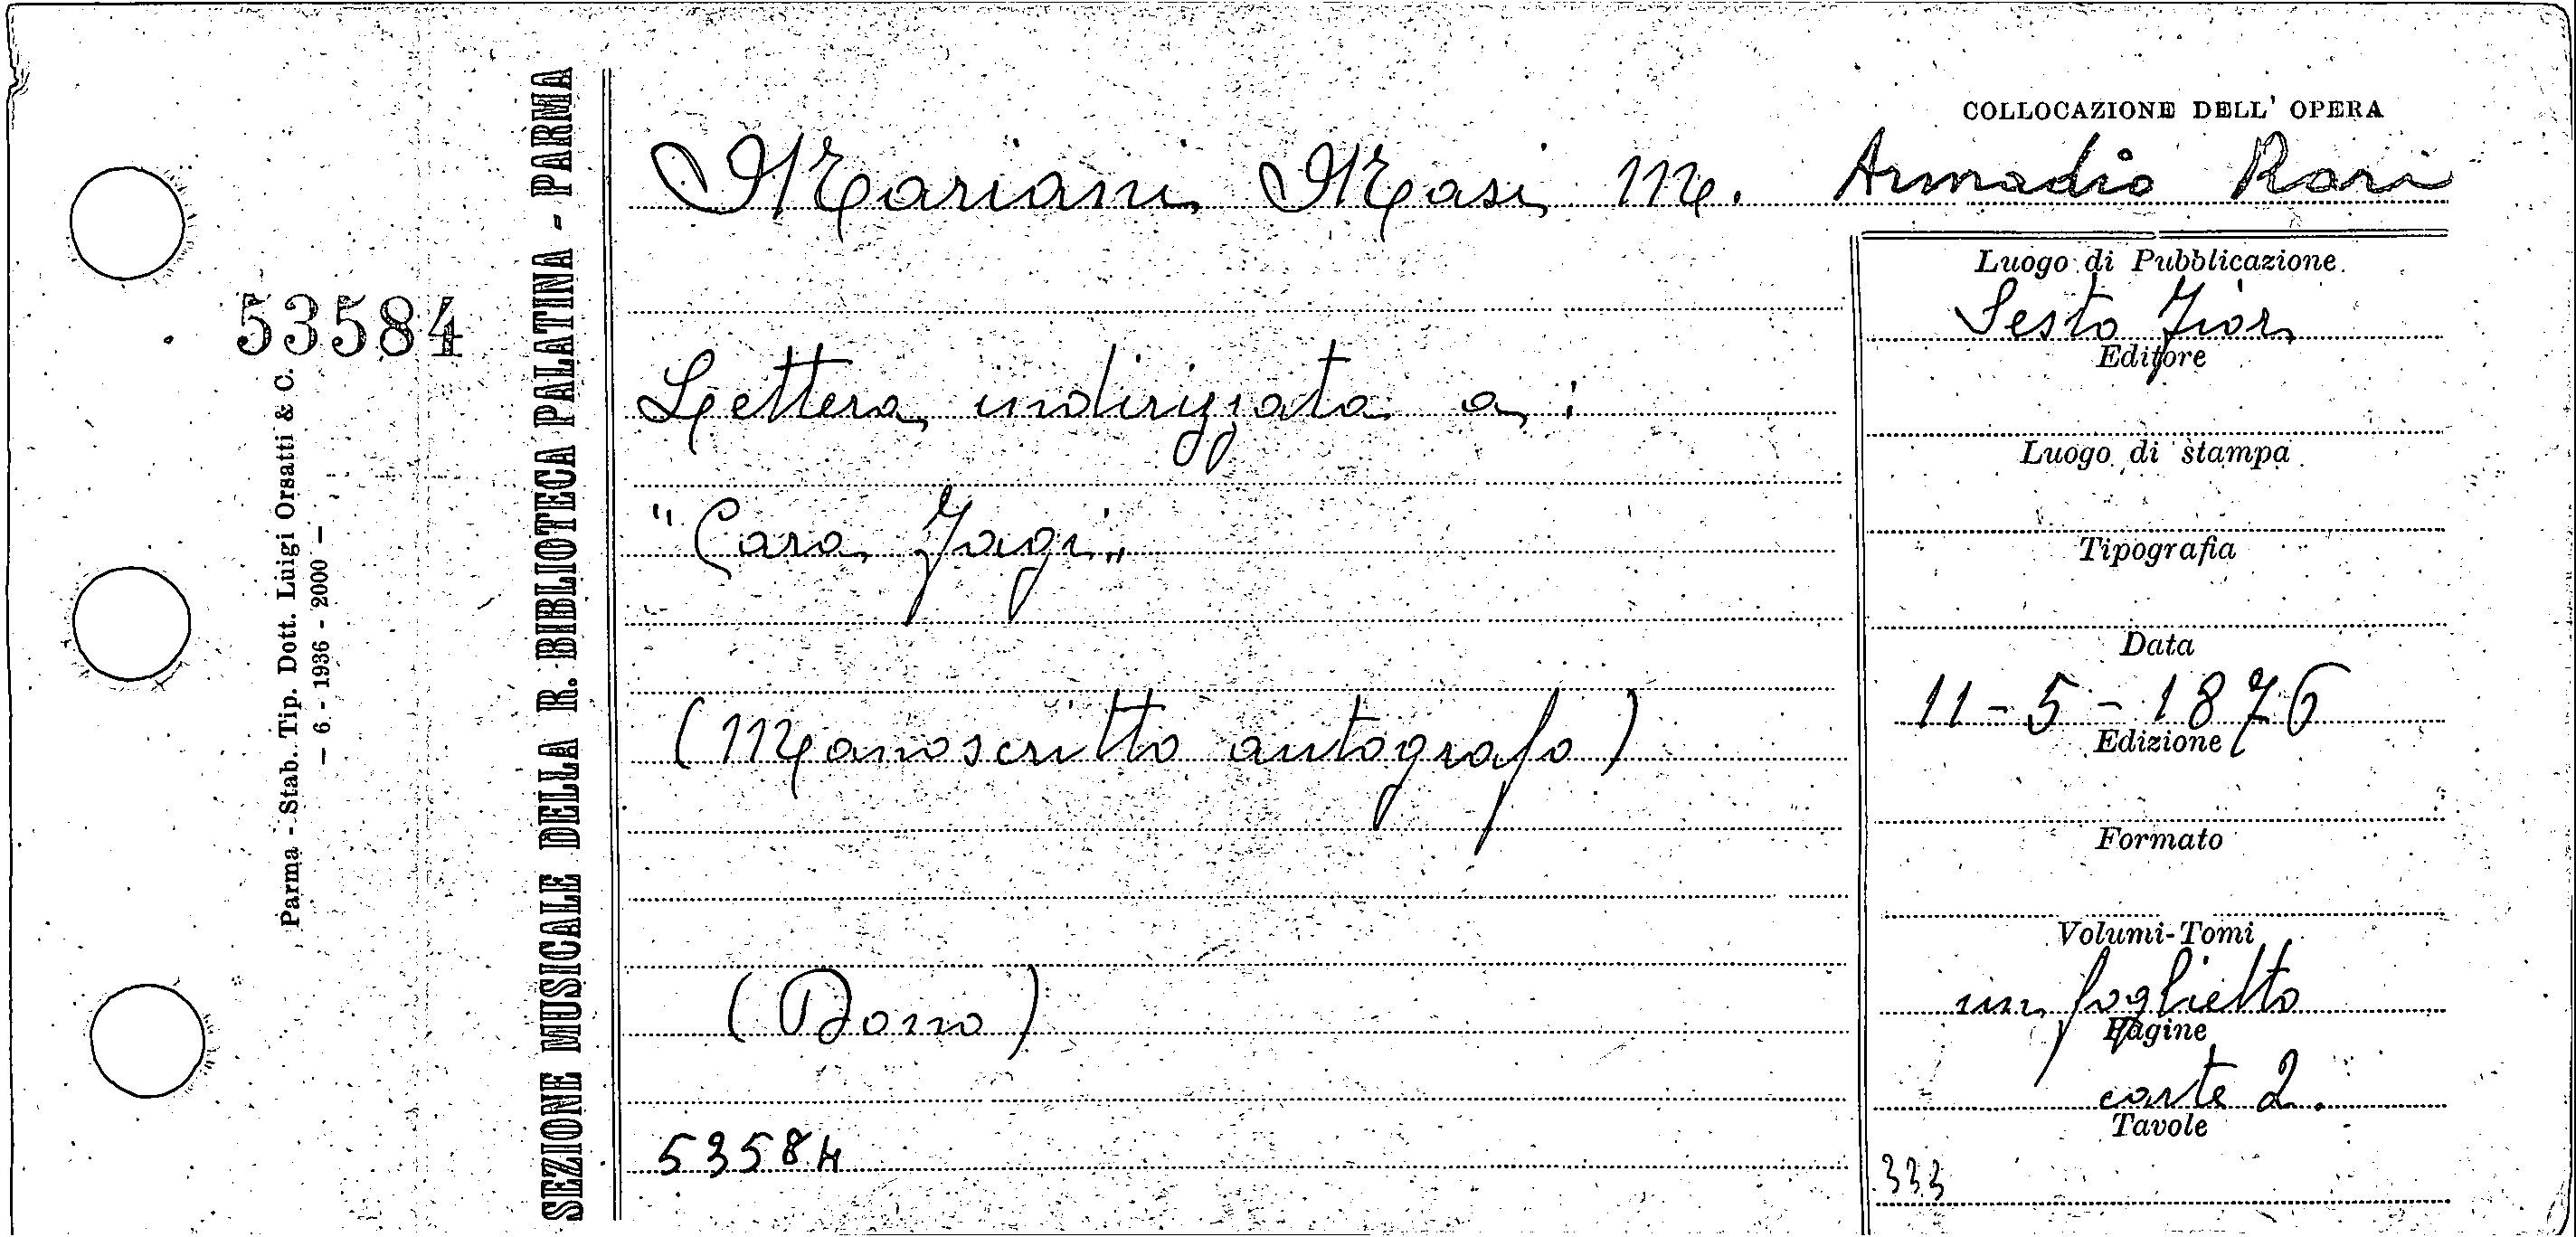 COLLOCAZIONE DELL' OPERA
Mariani Masi M. Armadio Rari
53584
Parma - Stab. Tip. Dott. Luigi Orsatti & C.
— 6 - 1936 - 2000 —
SEZIONE MUSICALE DELLA R. BIBLIOTECA PALATINA - PARMA
Lettera indirizzata a:
"Cara Jagi„
(Manoscritto autografo)
(Dono)
53584
Luogo di Pubblicazione
Sesto Fior.
Editore
Luogo di stampa
Tipografia
Data
11-5-1876
Edizione
Formato
Volumi-Tomi
un foglietto
Pagine
carte 2.
Tavole
333